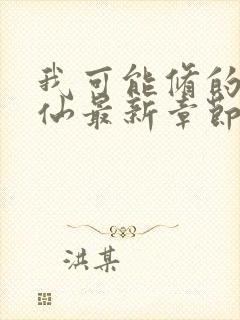 我可能修的
仙最新章节
洪某